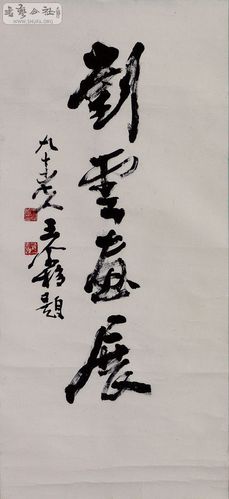 書藝公社
WWW.SHUFA.ORG
劉雲畫展
九十老人王个簃題